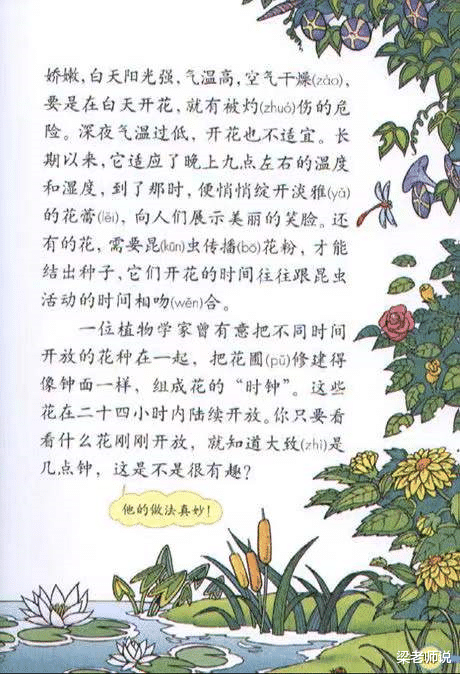 娇嫩,白天阳光强,气温高,空气干燥(zào)、
要是在白天开花，就有被灼(zhuó)伤的危
险。深夜气温过低，开花也不适宜。长
期以来,它适应了晚上九点左右的温度
和湿度，到了那时，便悄悄绽开淡雅(yǎ)
的花蕾(lěi)，向人们展示美丽的笑脸。还
有的花，需要昆(kūn)虫传播(bō)花粉，才能
结出种子,它们开花的时间往往跟昆虫
活动的时间相吻(wěn)合。
一位植物学家曾有意把不同时间
开放的花种在一起，把花圃(pǔ)修建得
像钟面一样，组成花的“时钟”。这些
花在二十四小时内陆续开放。你只要看
看什么花刚刚开放，就知道大致(zhì)是
几点钟，这是不是很有趣?
他的做法真妙!
梁老师说